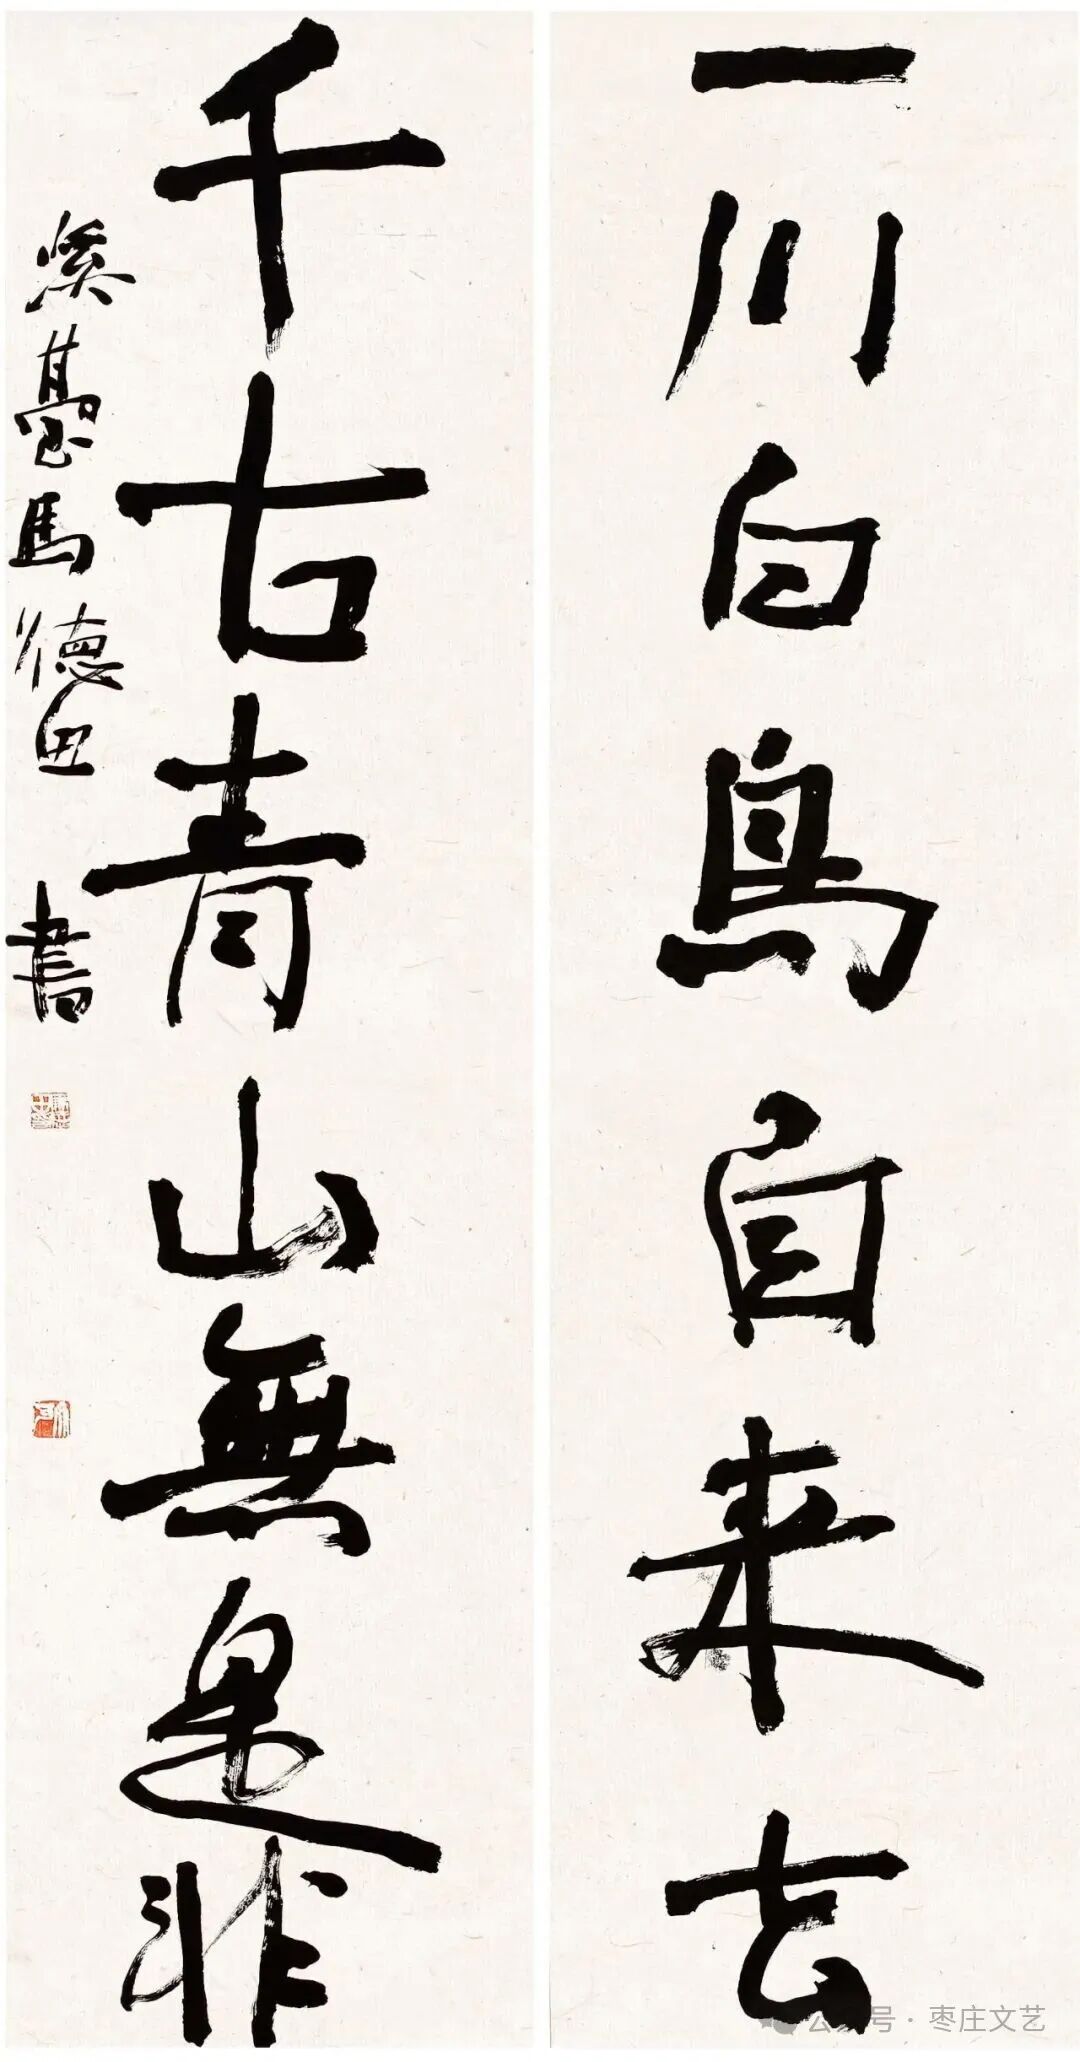 一川白鳥自来去
千古青山無是非
溪臺馬德田 書
公众号·枣庄文艺